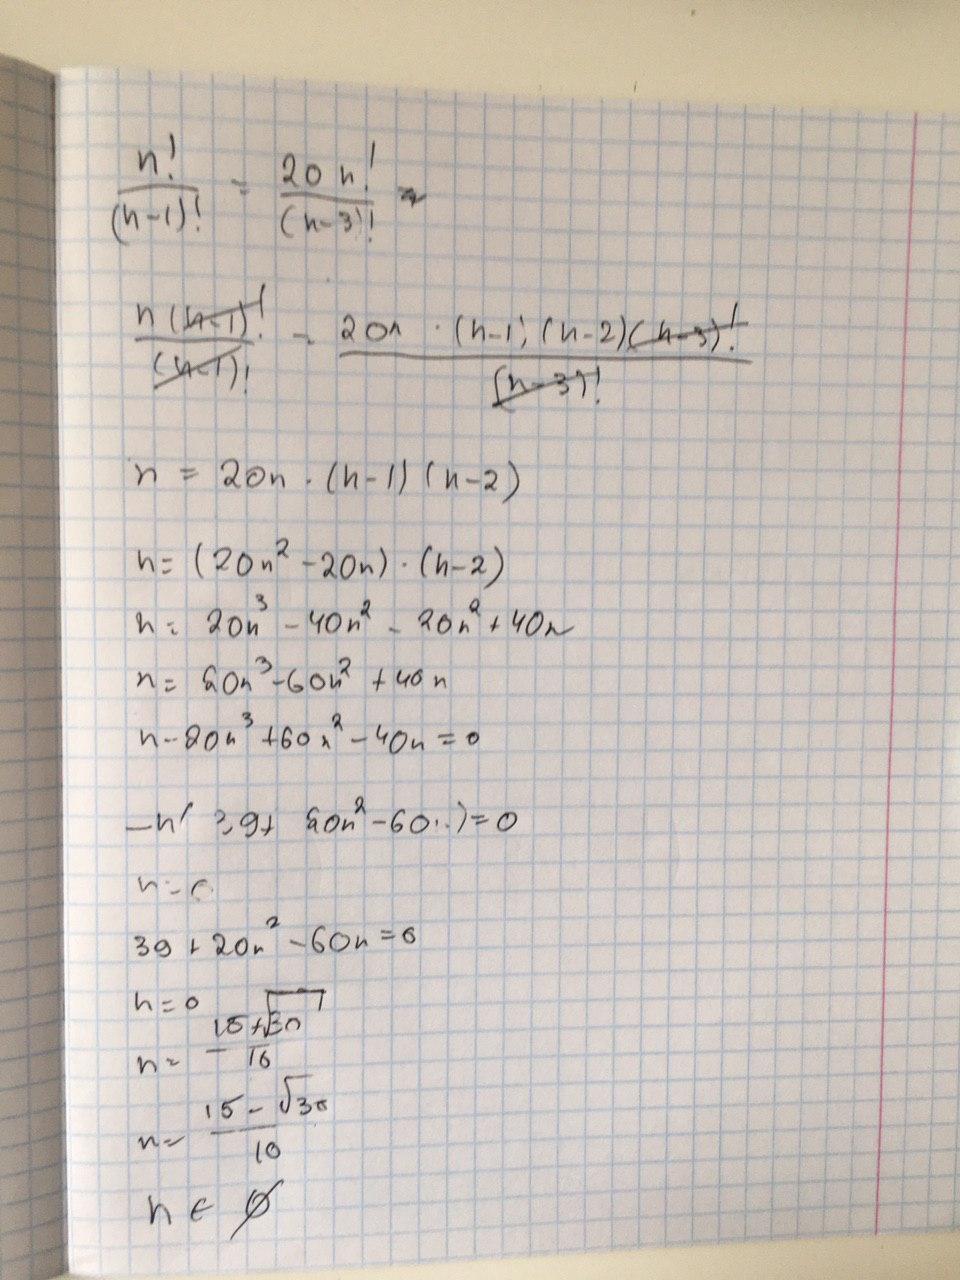 n!/(n-1)! = 20 n!/(n-3)!
n(n-1)!/(n-1)! = 20n · (n-1)(n-2)(n-3)!/(n-3)!
n = 20n · (n-1)(n-2)
n = (20n² - 20n) · (n-2)
n = 20n³ - 40n² - 20n² + 40n
n = 20n³ - 60n² + 40n
n - 20n³ + 60n² - 40n = 0
-n( 39+ 20n² - 60..) = 0
n =
39 + 20n² - 60n = 0
n = 0
n = 15+√30/10
n = 15 - √30/10
n ∈ ∅